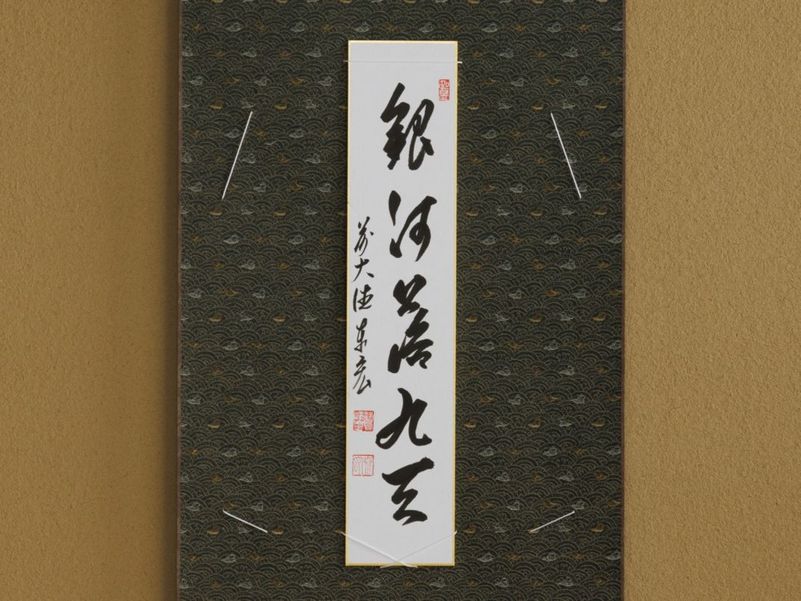 銀河落九天
前大徳東宏